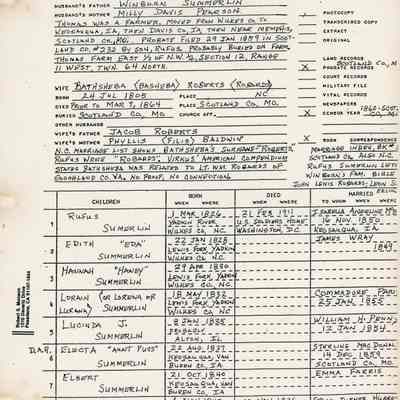 HUSBAND'S FATHER WINBURN SUMMERLIN
HUSBAND'S MOTHER MILLY DAVIS PEARSON
THOMAS WAS A FARMER, MOVED FROM WILKES CO TO
KEOSAUQUA, IA, THEN DAVIS CO, IA THEN NEAR MEMPHIS,
SCOTLAND CO, MO. PROBATE FILED 29 JAN 1859 IN SCOT-
LAND CO. #232 BY SON, RUFUS. PROBABLY BURIED ON FARM
THOMAS FARM EAST 1/2 OF N.W. 1/4, SECTION 12, RANGE
11 WEST, TWN. 64 NORTH.
PHOTOCOPY
TRANSCRIBED COPY
EXTRACT
ORIGINAL
LAND RECORDS
SCOTLAND CO, M
X PROBATE RECORDS
COURT RECORDS
MILITARY FILE
VITAL RECORDS
NEWSPAPER
X CENSUS YEAR
WIFE BATHSHEBA (BASHEBA) ROBERTS (ROBARDS)
BORN 24 JUL 1805 PLACE NC
DIED PRIOR TO MAR 7, 1864 PLACE SCOTLAND CO, MO.
BURIED SCOTLAND CO, MO CHURCH AFF.
OTHER HUSBANDS
WIFE'S FATHER JACOB ROBERTS
WIFE'S MOTHER PHYLLIS (FILIS) BALDWIN
X BOOK CORRESPONDENCE
N.C. MARRIAGE LIST SHOWS BATHSHEBA'S SURNAME "ROBERTS",
RUFUS WROTE "ROBARDS". VIRKUS' AMERICAN COMPENDIUM
STATES BATHSHEBA WAS RELATED TO LT. WM. ROBARDS OF
GOOCHLAND CO. VA. NO PROOF, NO CONNECTION
MARRIAGE INDEX, BK#
SCOTLAND CO. ALSO N.C.
RUFUS SUMERLIN LETT
WINBURN'S FAM. BIBLE
JOHN LEWIS ROBARDS; LEON S
CHILDREN
BORN WHEN WHERE
DIED WHEN WHERE
MARRIED
TO WHOM WHEN WHERE
1 RUFUS SUMERLIN
1 MAR 1826 YADKIN RIVER WILKES CO, NC
21 FEB 1911 U.S. SOLDIERS HOME WASHINGTON, DC
ISABELLA ANGELINE
16 NOV 1850
KEOSAUQUA, IA
2 EDITH "EDA" SUMMERLIN
22 JAN 1828 LEWIS FORK YADKIN WILKES CO, NC
JAMES WRAY
1849
3 HANNAH "HANEY" SUMMERLIN
29 APR 1830 LEWIS FORK YADKIN WILKES CO, NC
4 LORAIN (OR LORENA OR LURANA) SUMMERLIN
18 MAY 1832 LEWIS FORK YADKIN WILKES CO, NC
COMMADORE
25 JAN 1855
5 LUCINDA J. SUMMERLIN
2 JAN 1835 PROBABLY ALTON, IL
WILLIAM H. PENN
12 JAN 1854
D.A.R. 6 ELECTA "AUNT PUSS" SUMMERLIN
22 AUG 1837 KEOSAUQUA, VAN BUREN CO, IA
STERLING
14 DEC 1859
SCOTLAND CO, MO
7 ELBERT SUMMERLIN
21 OCT 1840 KEOSAUQUA, VAN BUREN CO, IA
EMMA FARRIS